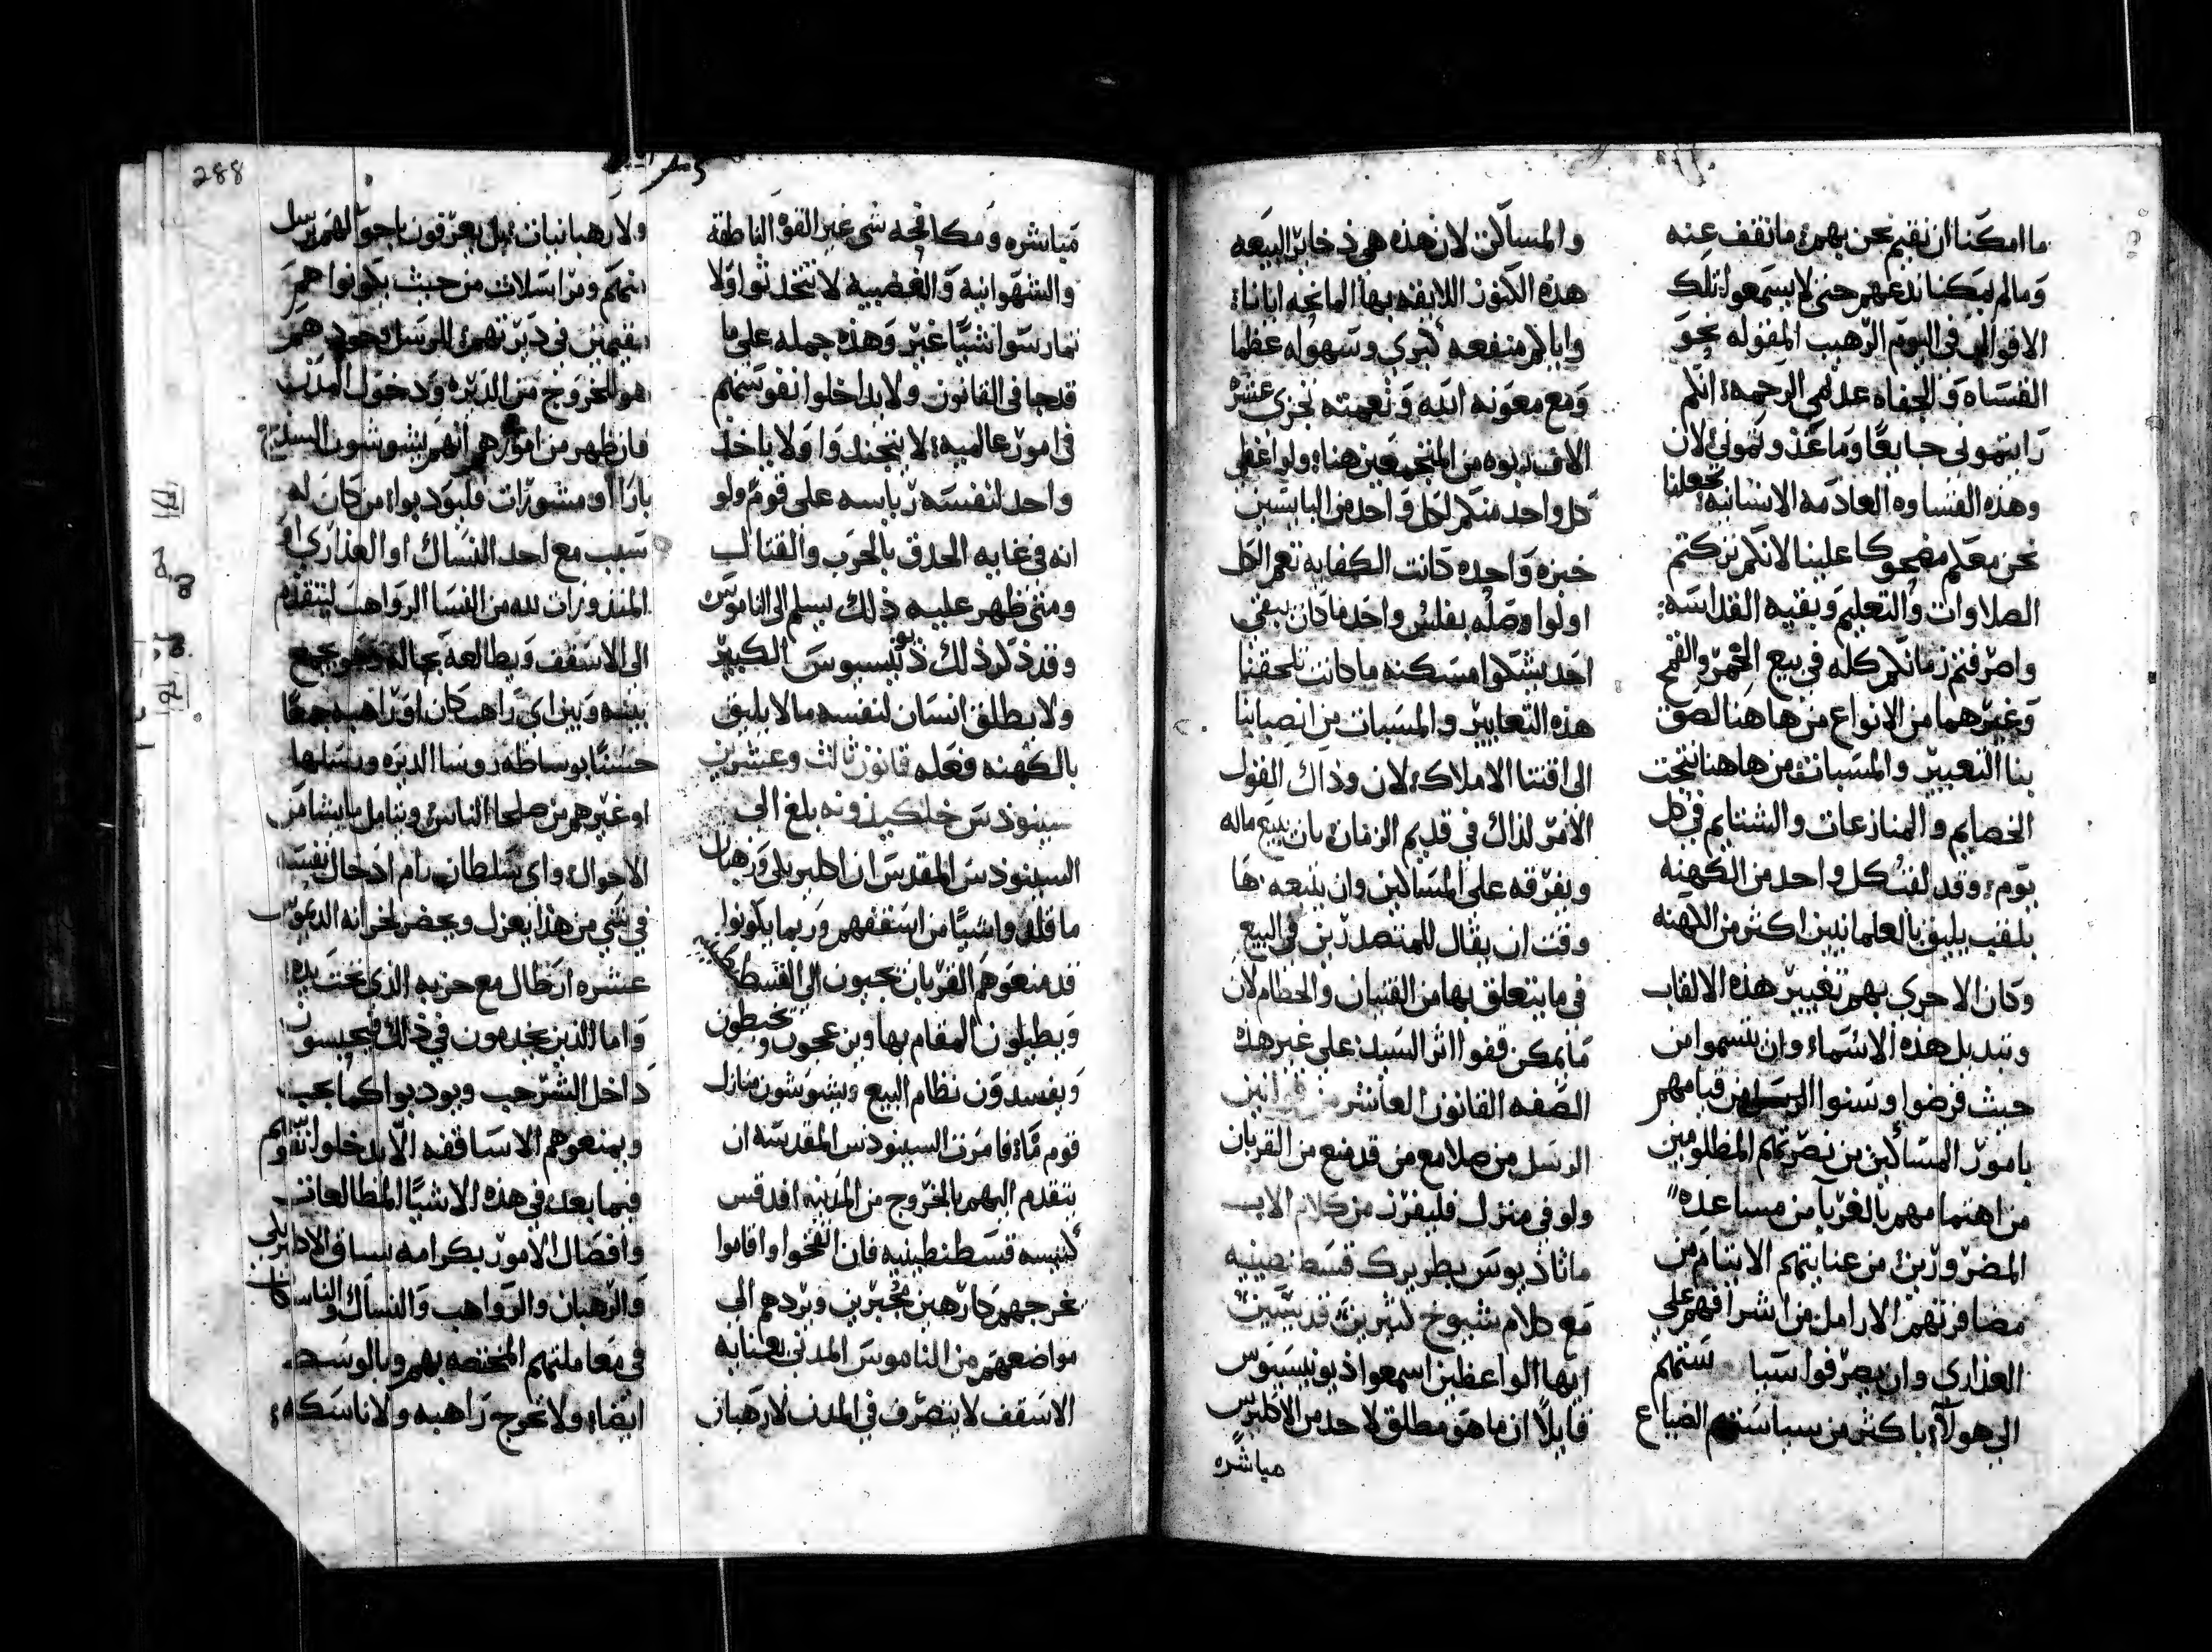 ما امكننا ان نقيم نحن بهم ما نقف عنه
وما لم يمكنا ندعهم حتى لا يسمعوا تلك
الاقوال في اليوم الرهيب المقوله نحو
القساه والجفاه عدلمي الرحمه انكم
رايتموني جايعًا وما غذوتموني لان
وهذه القساوه العادمه الانسانيه تجعلنا
نحن معكم مضحوكا علينا لانكم تركتم
الصلاوات والتعليم وبقيه القداسه
واصرفتم زمانكم كله في بيع الخمر والقمح
وغيرهما من الانواع من هاهنا لصق
بنا التعيير والمسبات من هاهنا نتجت
الخصايم والمنازعات والشتايم في كل
يوم وقد لقب كل واحد من الكهنه
بلقب يليق بالعلمانيين اكثر من الكهنه
وكان الاحرى بهم تغيير هذه الالقاب
وتبديل هذه الاسماء وان يتسموا من
حيث فرضوا وسنوا الرسل من قيامهم
بامور المساكين من نصرتهم المظلومين
من اهتمامهم بالغربا من مساعده
المضرورين من عنايتهم الايتام من
مضافرتهم الارامل من اشرافهم على
العذارى وان يصرفوا سيا ستهم
الى هولاء باكثر من سياستهم الضياع
والمساكن لان هذه هي ذخاير البيعه
هذه الكنوز اللايقه بها المانحه ايانا
واياكم منفعه كبرى وسهوله عظما
ومع معونه الله ونعمته نجزى عشر
الاف ربوه من المجتمعين هنا ولو اعطى
كل واحد منكم لكل واحد من البايسين
خبزه واحده كانت الكفايه تعم الكل
اولو اوصله بفلس واحد ما كان يبقى
احد يشكوا مسكنه ما كانت تلحقنا
هذه التعايير والمسبات من انصبابنا
الى اقتنا الاملاك لان وذاك القول
الامر لذاك في قديم الزمان بان يبيع ماله
ويفرقه على المساكين وان يتبعه ها
وقت ان يقال للمتصدرين في البيع
في ما يتعلق بها من القنيان والحطام لان
ما يمكن قفوا اثر السيد على غير هذه
الصفه القانون العاشر من قوانين
الرسل من صلا مع من قد منع من القربان
ولو في منزل فليفرز من كلام الاب
ماثاذيوس بطريرك قسطنطينيه
مع كلام شيوخ كثيرين قديسين
ايها الواعظين اسمعوا ذيونيسيوس
قايلًا ان ما هو مطلق لاحد من الاكليرس
مباشره
مباشره ومكافحه شي غير القوه الناطقه
والشهوانيه والغضبيه لا تتخدثوا ولا
تمارسوا شيًا غير وهذه جمله على ما
قد جا في القانون ولا يداخلوا نفوسهم
في امور عالميه لا يتجندوا ولا ياخذ
واحد لنفسه رياسه على قوم ولو
انه في غايه الحدق بالحرب والقتال
ومتى ظهر عليه ذلك يسلم الى الناموس
وقد ذكر ذلك ذيونيسيوس الكبير
ولا يطلق انسان لنفسه ما لا يليق
بالكهنه فعله قانون ثالث وعشرين
سينودس خلكيذونه بلغ الى
السينودس المقدس ان اكليريكي ورهبان
ما قلدوا شيًا من اسقفهم وربما يكونوا
قد منعوهم القربان يجيون الى القسطنطينيه
ويطيلون المقام بها وين عجون ويخبطون
ويفسدون نظام البيع ويشوشون منازل
قوم ما فامرت السينودس المقدسه ان
يتقدم اليهم بالخروج من المدينه افدقس
كنيسه قسطنطينيه فان اتقحوا واقاموا
يخرجهم كارهين مجبرين ويردهم الى
مواضعهم من الناموس المدني بعنايه
الاسقف لا يتصرف في المدن لا رهبان
288
ولا رهبانيات بل يعرفون باجوالهم برسل
منهم ومراسلات من حيث يكونوا هم
مقيمين في ديرتهم الرسل وجود هم
هو الخروج من الديره ودخول المدن
فان ظهر من امورهم انهم يشوشون السلا
بارا او مشورات فليودبوا من كان له
تسبب مع احد النساك او العذارى او
المنذورات لله من النسا الرواهب ليتقدم
الى الاسقف ويطالعه بحاله وهو يجمع
بينه وبين اي راهب كان او راهبه جمعًا
حسنًا بوساطه روسا الديره ورسلها
او غيرهم من صلحا الناس ويتامل ما يشا من
الاحوال واي سلطان رام ادخال نفسه
في شي من هذا يعزل ويحضر لخزانه الديموس
عشره ارطال مع حزبه الذي تحت يده
واما الذين يخدمون في ذلك فيحبسون
داخل الشرجب ويودبوا كما يجب
ويمنعوهم الاساقفه الّا يدخلوا نفوسهم
فيما بعد في هذه الاشيا المطالعات
وافضال الامور بكرامه يساق الاكليريكي
والرهبان والرواهب والنساك والناسكات
في معاملتهم المختصه بهم وبالوسط
ايضا ولا تخرج راهبه ولا ناسكه